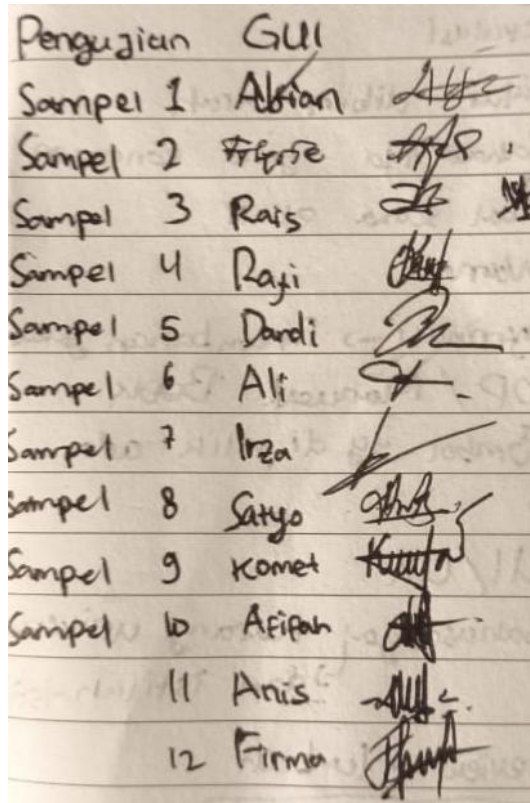 Pengujian GUI
Sampel 1 Abian
Sampel 2
Sampel 3 Rais
Sampel 4 Rafi
Sampel 5 Dandi
Sampel 6 Ali
Sampel 7 Irza
Sampel 8 Satyo
Sampel 9 Komet
Sampel 10 Afifah
11 Anis
12 Firma